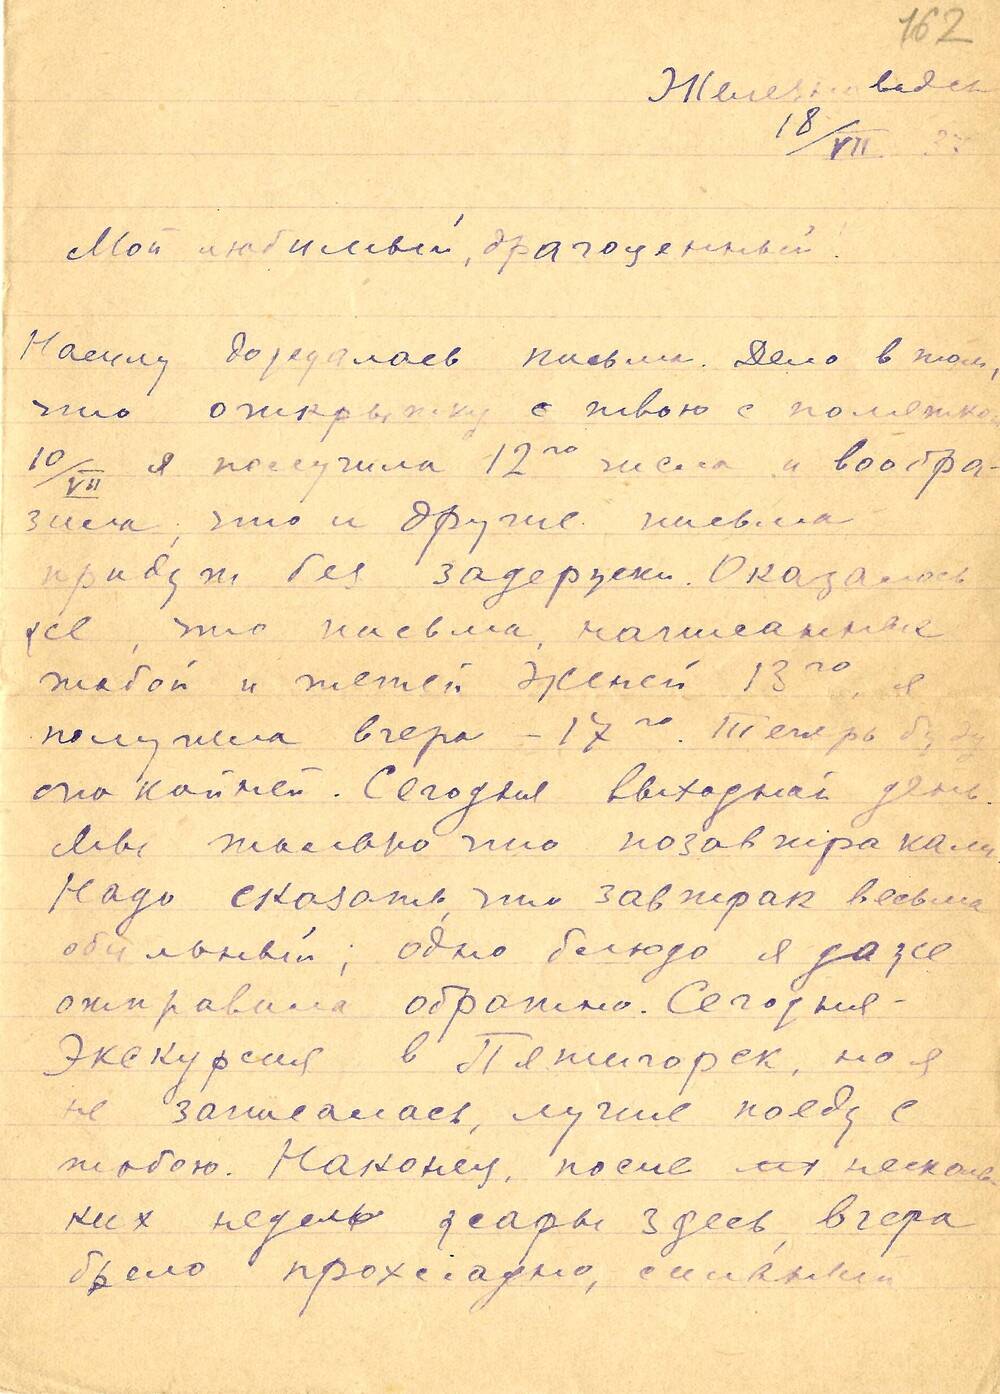 162
Железноводск
18/VII 37
Мой любимый, драгоценный!
Насилу дождалась письма. Дело в том,
что открытку с твою с пометкой
10/VII я получила 12го числа и вообра-
зила, что и другие письма
придут без задержки. Оказалось
же, что письма, написанных
тобой и тетей Женей 13го, я
получила вчера - 17го. Теперь буду
спокойней. Сегодня выходной день.
Мы только что позавтракали.
Надо сказать, что завтрак весьма
обильный; одно блюдо я даже
отправила обратно. Сегодня -
Экскурсия в Пятигорск, но я
не записалась, лучше поеду с
тобою. Наконец, после несколь-
ких недель жары здесь, вчера
было прохладно, сильный